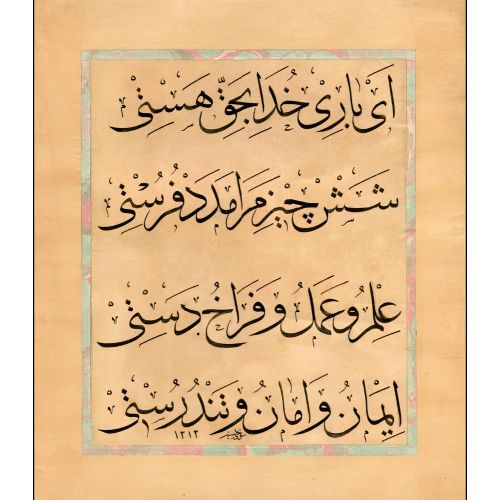 ای باری خدا بحق هستی
شش چیز مرا مدد فرستی
علم و عمل و فراخ دستی
ایمان و امان و تندرستی
١٣١٣